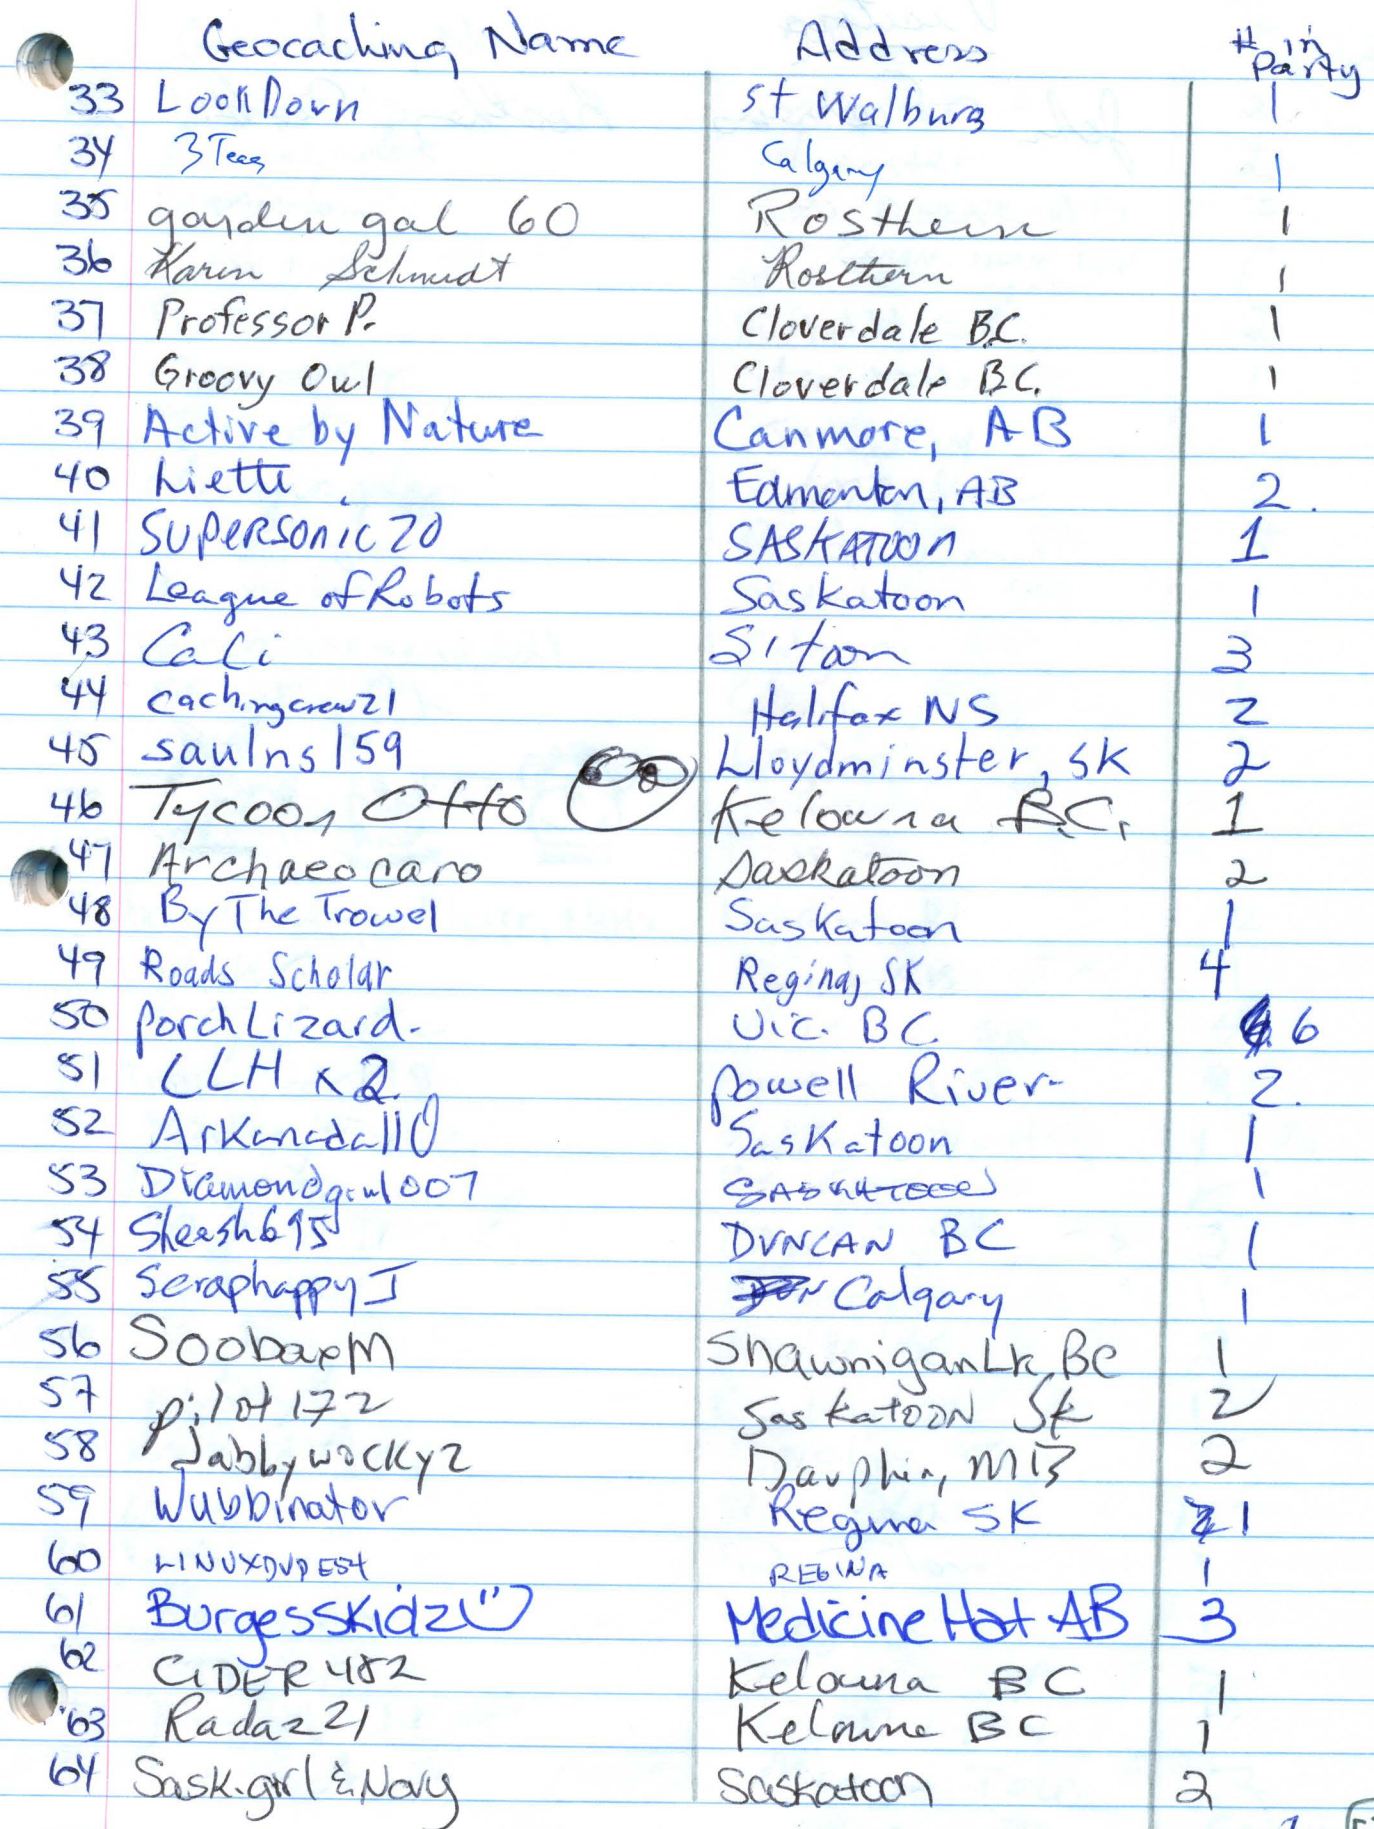 Geocaching Name Address # in Party
33 LookDown St Walburg 1
34 3 Teas Calgary 1
35 garden gal 60 Rosthern 1
36 Karen Schmidt Rosthern 1
37 Professor P. Cloverdale B.C. 1
38 Groovy Owl Cloverdale B.C. 1
39 Active by Nature Canmore, AB 1
40 Liette Edmonton, AB 2.
41 Supersonic20 SASKATOON 1
42 League of Robots Saskatoon 1
43 CaCi S'toon 3
44 cachingcrew21 Halifax NS 2
45 saulns159 Lloydminster, SK 2
46 Tycoon Otto Kelowna B.C. 1
47 Archaeocaro Saskatoon 2
48 By The Trowel Saskatoon 1
49 Roads Scholar Regina, SK 4
50 porchLizard. Vic. BC 6
51 LLH x2 Powell River 2.
52 Arkanada110 Saskatoon 1
53 Diamondgirl007 SASKATOON 1
54 Sheesh695 DUNCAN BC 1
55 SeraphappyJ Calgary 1
56 SoobaeM Shawnigan Lk, BC 1
57 pilot172 Saskatoon Sk 2
58 Jabbywocky2 Dauphin, MB 2
59 Wubbinator Regina SK 1
60 REGINA 1
61 BurgessKidz Medicine Hat AB 3
62 CIDER482 Kelowna BC 1
63 Radaz21 Kelowna BC 1
64 Sask-girl & Navy Saskatoon 2